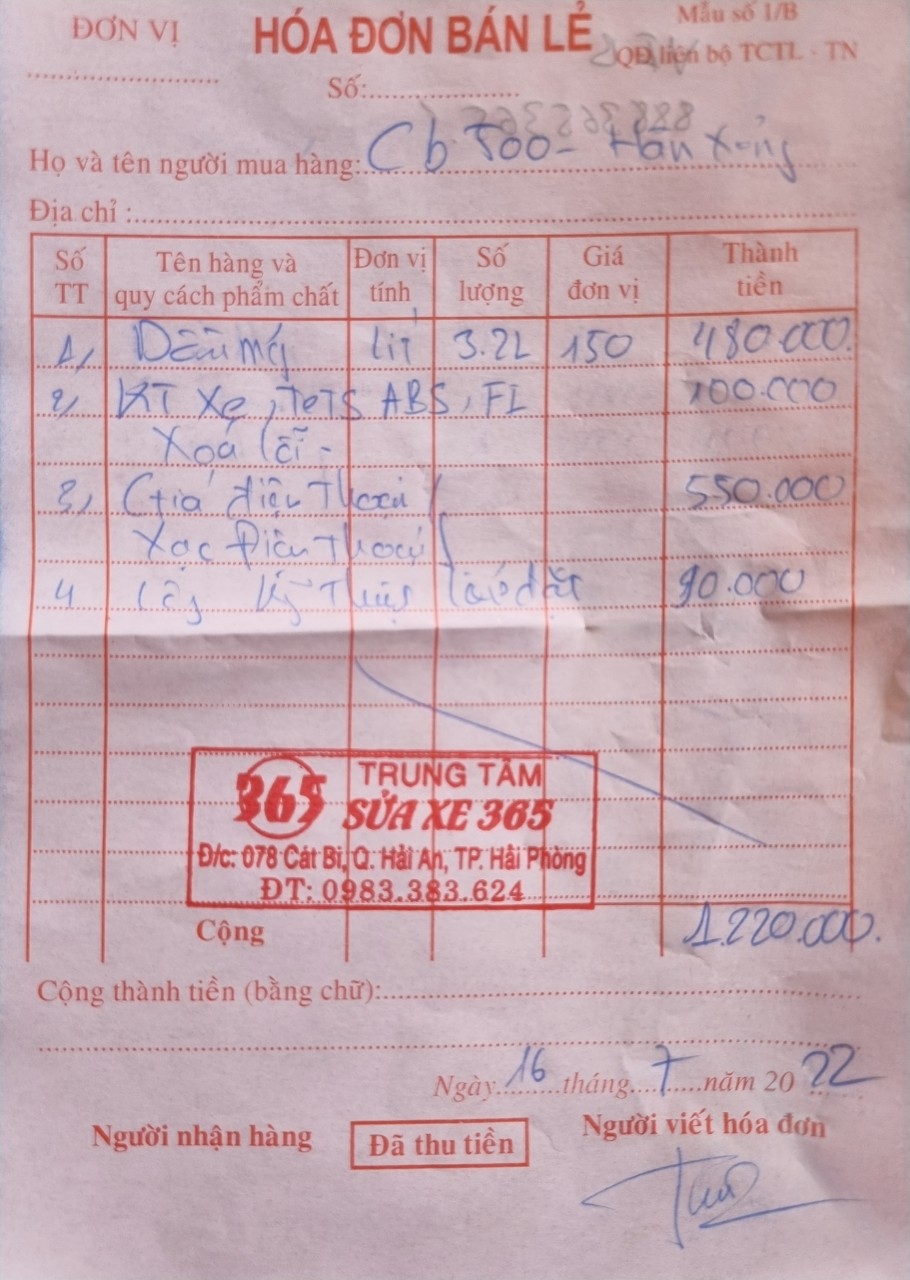 ĐƠN VỊ
HÓA ĐƠN BÁN LẺ
Mẫu số 1/B
QĐ liên bộ TCTL - TN
Số:
Họ và tên người mua hàng: Cb 500 -
Địa chỉ :
Số TT
Tên hàng và quy cách phẩm chất
Đơn vị tính
Số lượng
Giá đơn vị
Thành tiền
1, Dầu máy lít 3.2L 150 480.000
2, KT Xe, Tets ABS, FI 100.000
Xoá lỗi -
3, Giá điện thoại 550.000
Xạc Điện thoại
4 Kỹ Thuật lắp đặt 90.000
365 TRUNG TÂM
SỬA XE 365
Đ/c: 078 Cát Bi, Q. Hải An, TP. Hải Phòng
ĐT: 0983.383.624
Cộng 1.220.000.
Cộng thành tiền (bằng chữ):
Ngày 16 tháng 7 năm 2022
Người nhận hàng
Đã thu tiền
Người viết hóa đơn